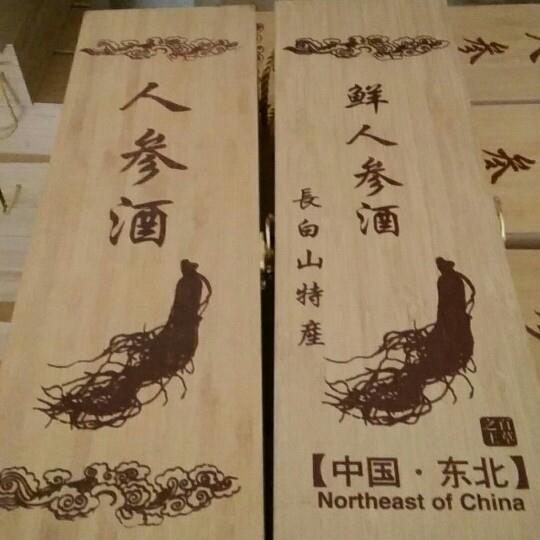 人参酒
鲜人参酒
長白山特産
百草之王
【中国·东北】
Northeast of China
参
参